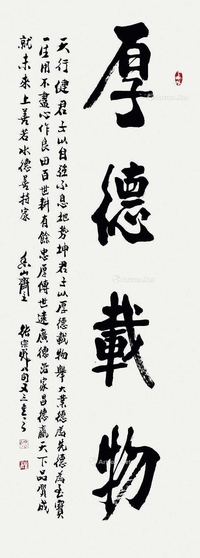 厚德載物
天行健君子以自强不息地势坤君子以厚德載物舉大業德為先德為至寶
一生用不盡心作良田百世耕有餘忠厚傳世遠廣德治家昌德贏天下品質成
就未來上善若水德善持家